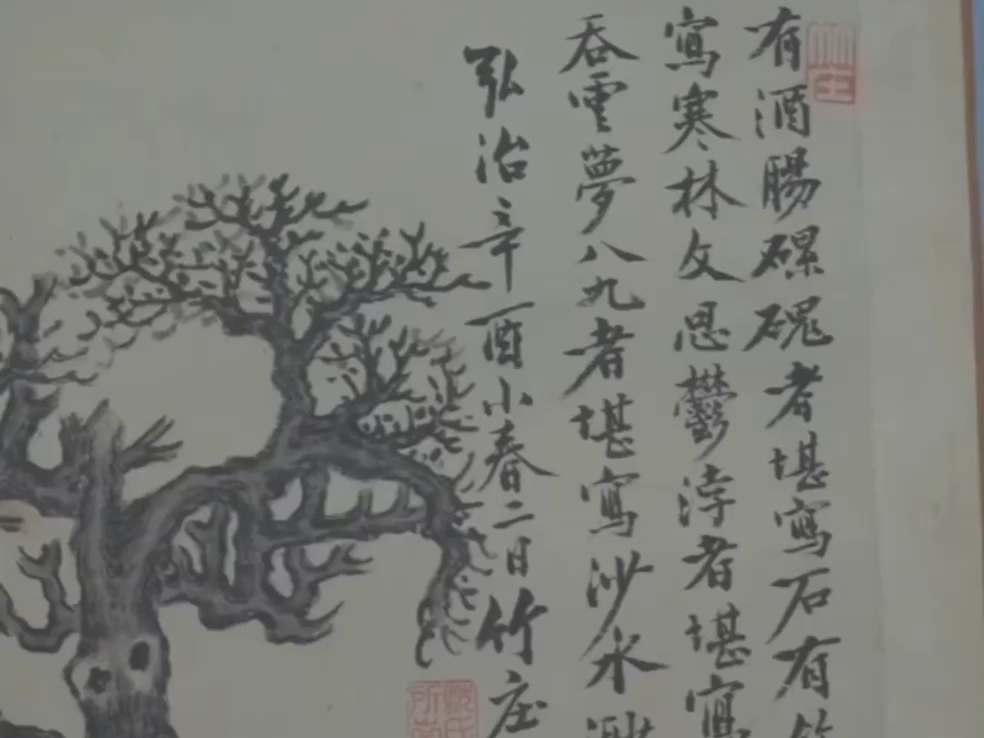 有酒腸磥磈者堪寫石有
寫寒林文思鬱浡者堪寫
吞雲夢八九者堪寫沙水
弘治辛酉小春二日竹庄